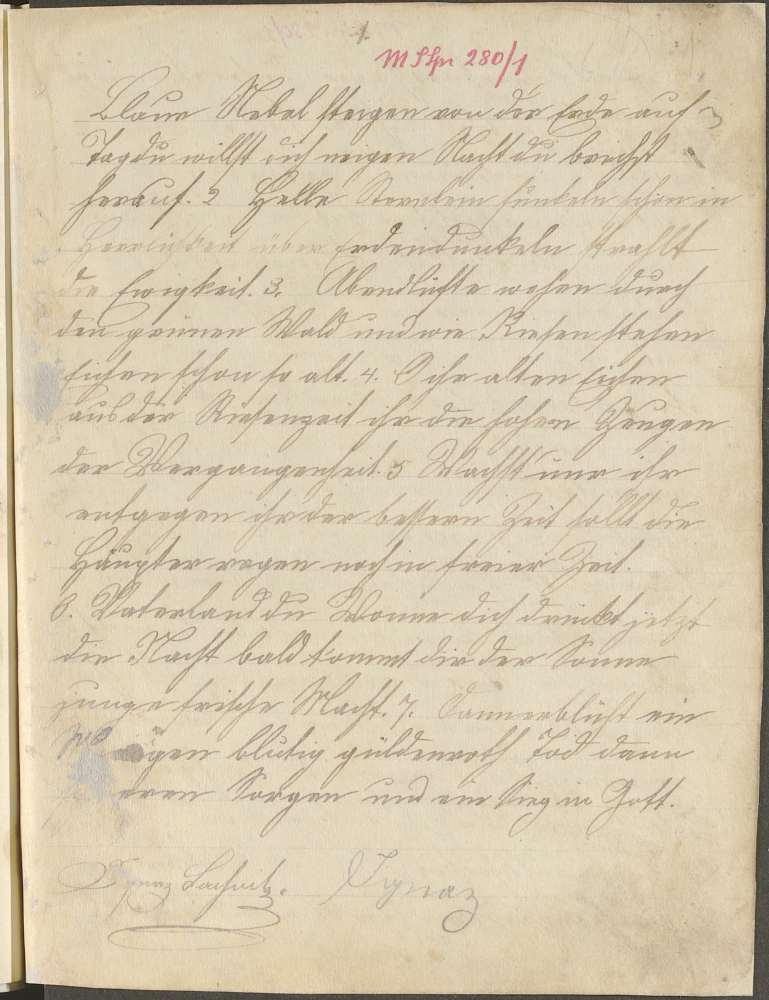 1.
MSpr 280/1
Blaue Nebel steigen von der Erde auf
Tag du willst dich neigen Nacht du brichst
herauf. 2 Helle Sternlein funkeln schon in
Herrlichkeit über Erdendunkeln strahlt
die Ewigkeit. 3. Abendlüfte wehen durch
den grünen Wald und wie Riesen stehen
Eichen schon so alt. 4. O ihr alten Eichen
aus der Riesenzeit ihr die hohen Zeugen
der Vergangenheit. 5 Wachst nur ihr
entgegen ihr der bessern Zeit sollt die
Häupter regen noch in freier Zeit.
6. Vaterland du Wonne dich drückt jetzt
die Nacht bald kommt dir der Sonne
junge frische Macht. 7. Dann erblüht ein
Morgen blutig güldenroth Tod dann
euren Sorgen und ein Sieg in Gott.
Ignaz Ignaz